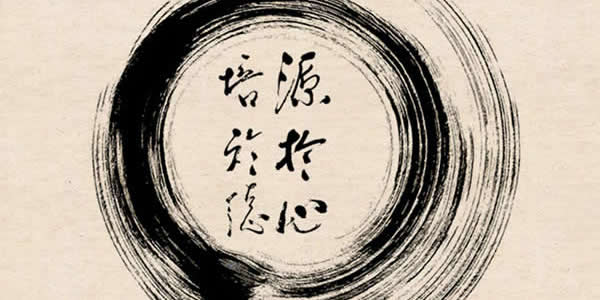 源於心
培於德